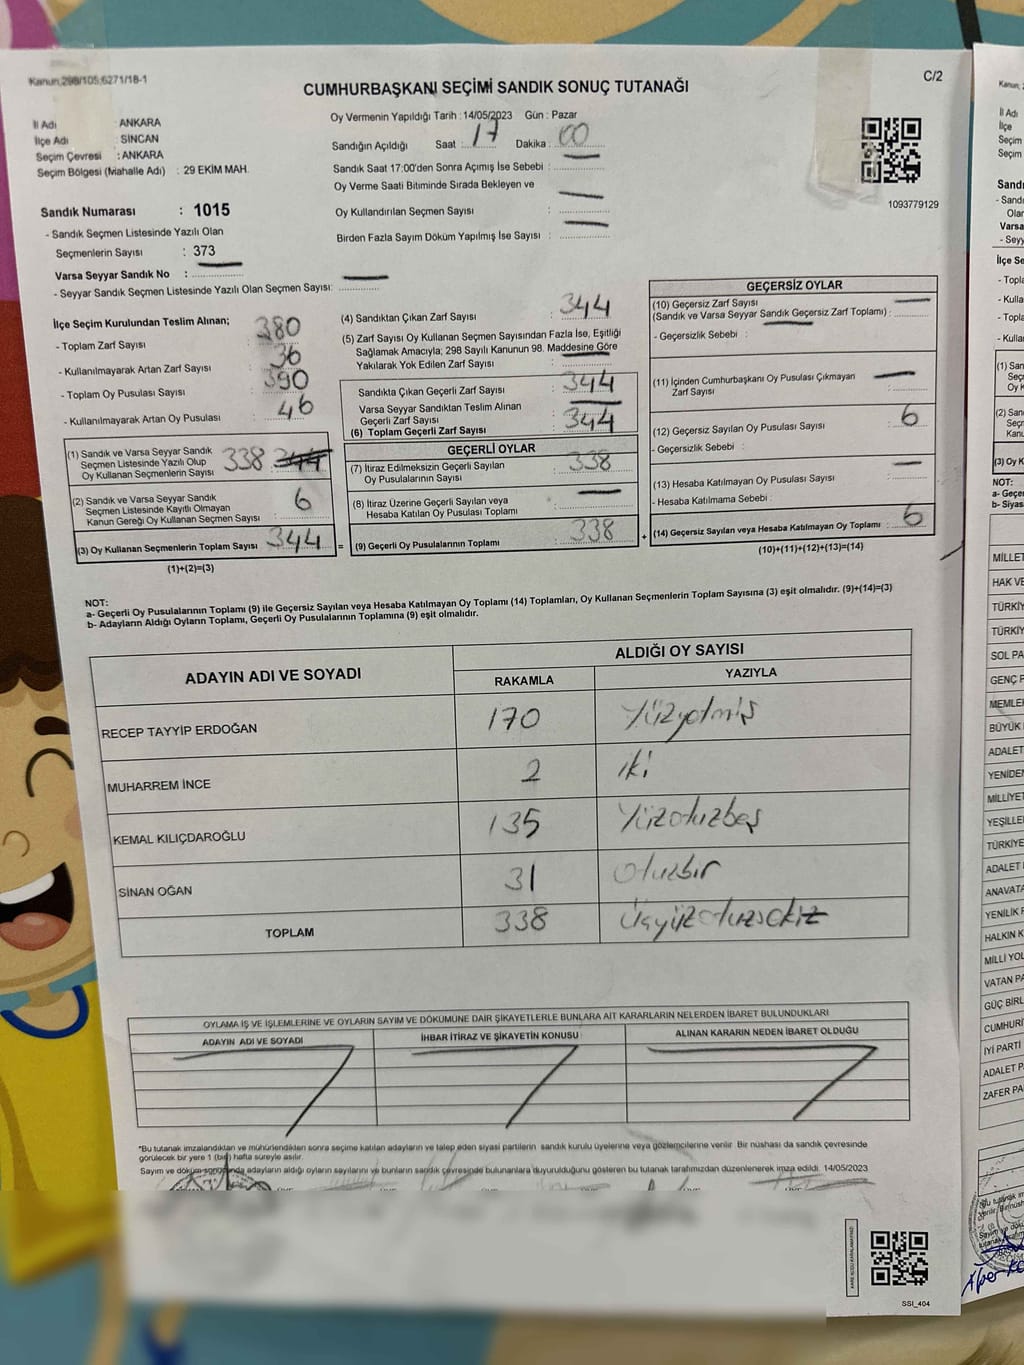 Kanun;298/105;6271/18-1
C/2
CUMHURBAŞKANI SEÇİMİ SANDIK SONUÇ TUTANAĞI
İl Adı : ANKARA
İlçe Adı : SİNCAN
Seçim Çevresi : ANKARA
Seçim Bölgesi (Mahalle Adı) : 29 EKİM MAH.
Oy Vermenin Yapıldığı Tarih : 14/05/2023 Gün : Pazar
Sandığın Açıldığı Saat : 17 Dakika : 00
Sandık Saat 17:00'den Sonra Açımış İse Sebebi :
Oy Verme Saati Bitiminde Sırada Bekleyen ve
Oy Kullandırılan Seçmen Sayısı :
Birden Fazla Sayım Döküm Yapılmış İse Sayısı :
1093779129
Sandık Numarası : 1015
- Sandık Seçmen Listesinde Yazılı Olan
Seçmenlerin Sayısı : 373
Varsa Seyyar Sandık No :
- Seyyar Sandık Seçmen Listesinde Yazılı Olan Seçmen Sayısı:
İlçe Seçim Kurulundan Teslim Alınan;
- Toplam Zarf Sayısı : 380
- Kullanılmayarak Artan Zarf Sayısı : 36
- Toplam Oy Pusulası Sayısı : 390
- Kullanılmayarak Artan Oy Pusulası : 46
(1) Sandık ve Varsa Seyyar Sandık
Seçmen Listesinde Yazılı Olup
Oy Kullanan Seçmenlerin Sayısı 338 : 344
(2) Sandık ve Varsa Seyyar Sandık
Seçmen Listesinde Kayıtlı Olmayan
Kanun Gereği Oy Kullanan Seçmen Sayısı : 6
(3) Oy Kullanan Seçmenlerin Toplam Sayısı : 344 =
(1)+(2)=(3)
(4) Sandıktan Çıkan Zarf Sayısı : 344
(5) Zarf Sayısı Oy Kullanan Seçmen Sayısından Fazla İse, Eşitliği
Sağlamak Amacıyla; 298 Sayılı Kanunun 98. Maddesine Göre
Yakılarak Yok Edilen Zarf Sayısı :
Sandıkta Çıkan Geçerli Zarf Sayısı : 344
Varsa Seyyar Sandıktan Teslim Alınan
Geçerli Zarf Sayısı :
(6) Toplam Geçerli Zarf Sayısı : 344
GEÇERLİ OYLAR
(7) İtiraz Edilmeksizin Geçerli Sayılan
Oy Pusulalarının Sayısı : 338
(8) İtiraz Üzerine Geçerli Sayılan veya
Hesaba Katılan Oy Pusulası Toplamı :
(9) Geçerli Oy Pusulalarının Toplamı : 338 +
GEÇERSİZ OYLAR
(10) Geçersiz Zarf Sayısı
(Sandık ve Varsa Seyyar Sandık Geçersiz Zarf Toplamı) :
- Geçersizlik Sebebi :
(11) İçinden Cumhurbaşkanı Oy Pusulası Çıkmayan
Zarf Sayısı :
(12) Geçersiz Sayılan Oy Pusulası Sayısı : 6
- Geçersizlik Sebebi :
(13) Hesaba Katılmayan Oy Pusulası Sayısı :
- Hesaba Katılmama Sebebi :
(14) Geçersiz Sayılan veya Hesaba Katılmayan Oy Toplamı : 6
(10)+(11)+(12)+(13)=(14)
NOT:
a- Geçerli Oy Pusulalarının Toplamı (9) ile Geçersiz Sayılan veya Hesaba Katılmayan Oy Toplamı (14) Toplamları, Oy Kullanan Seçmenlerin Toplam Sayısına (3) eşit olmalıdır. (9)+(14)=(3)
b- Adayların Aldığı Oyların Toplamı, Geçerli Oy Pusulalarının Toplamına (9) eşit olmalıdır.
ADAYIN ADI VE SOYADI ALDIĞI OY SAYISI
RAKAMLA YAZIYLA
RECEP TAYYİP ERDOĞAN 170 Yüzyetmiş
MUHARREM İNCE 2 iki
KEMAL KILIÇDAROĞLU 135 Yüzotuzbeş
SİNAN OĞAN 31 Otuzbir
TOPLAM 338 Üçyüzotuzsekiz
OYLAMA İŞ VE İŞLEMLERİNE VE OYLARIN SAYIM VE DÖKÜMÜNE DAİR ŞİKAYETLERLE BUNLARA AİT KARARLARIN NELERDEN İBARET BULUNDUKLARI
ADAYIN ADI VE SOYADI İHBAR İTİRAZ VE ŞİKAYETİN KONUSU ALINAN KARARIN NEDEN İBARET OLDUĞU
*Bu tutanak imzalandıktan ve mühürlendikten sonra seçime katılan adayların ve talep eden siyasi partilerin sandık kurulu üyelerine veya gözlemcilerine verilir. Bir nüshası da sandık çevresinde
görülecek bir yere 1 (bir) hafta süreyle asılır.
Sayım ve döküm sonunda adayların aldığı oyların sayılarını ve bunların sandık çevresinde bulunanlara duyurulduğunu gösteren bu tutanak tarafımızdan düzenlenerek imza edildi. 14/05/2023
SSI_404
Kanun;
İl Adı
İlçe
Seçim
Seçim
MİLLET
HAK VE
TÜRKİY
TÜRKİY
SOL PA
GENÇ P
MEMLEK
BÜYÜK
ADALET
YENİDEN
MİLLİYET
YEŞİLLER
TÜRKİYE
ADALET
ANAVATA
YENİLİK P
HALKIN K
MİLLİ YOL
VATAN PA
GÜÇ BİRL
CUMHURİ
İYİ PARTİ
ADALET P
ZAFER PA